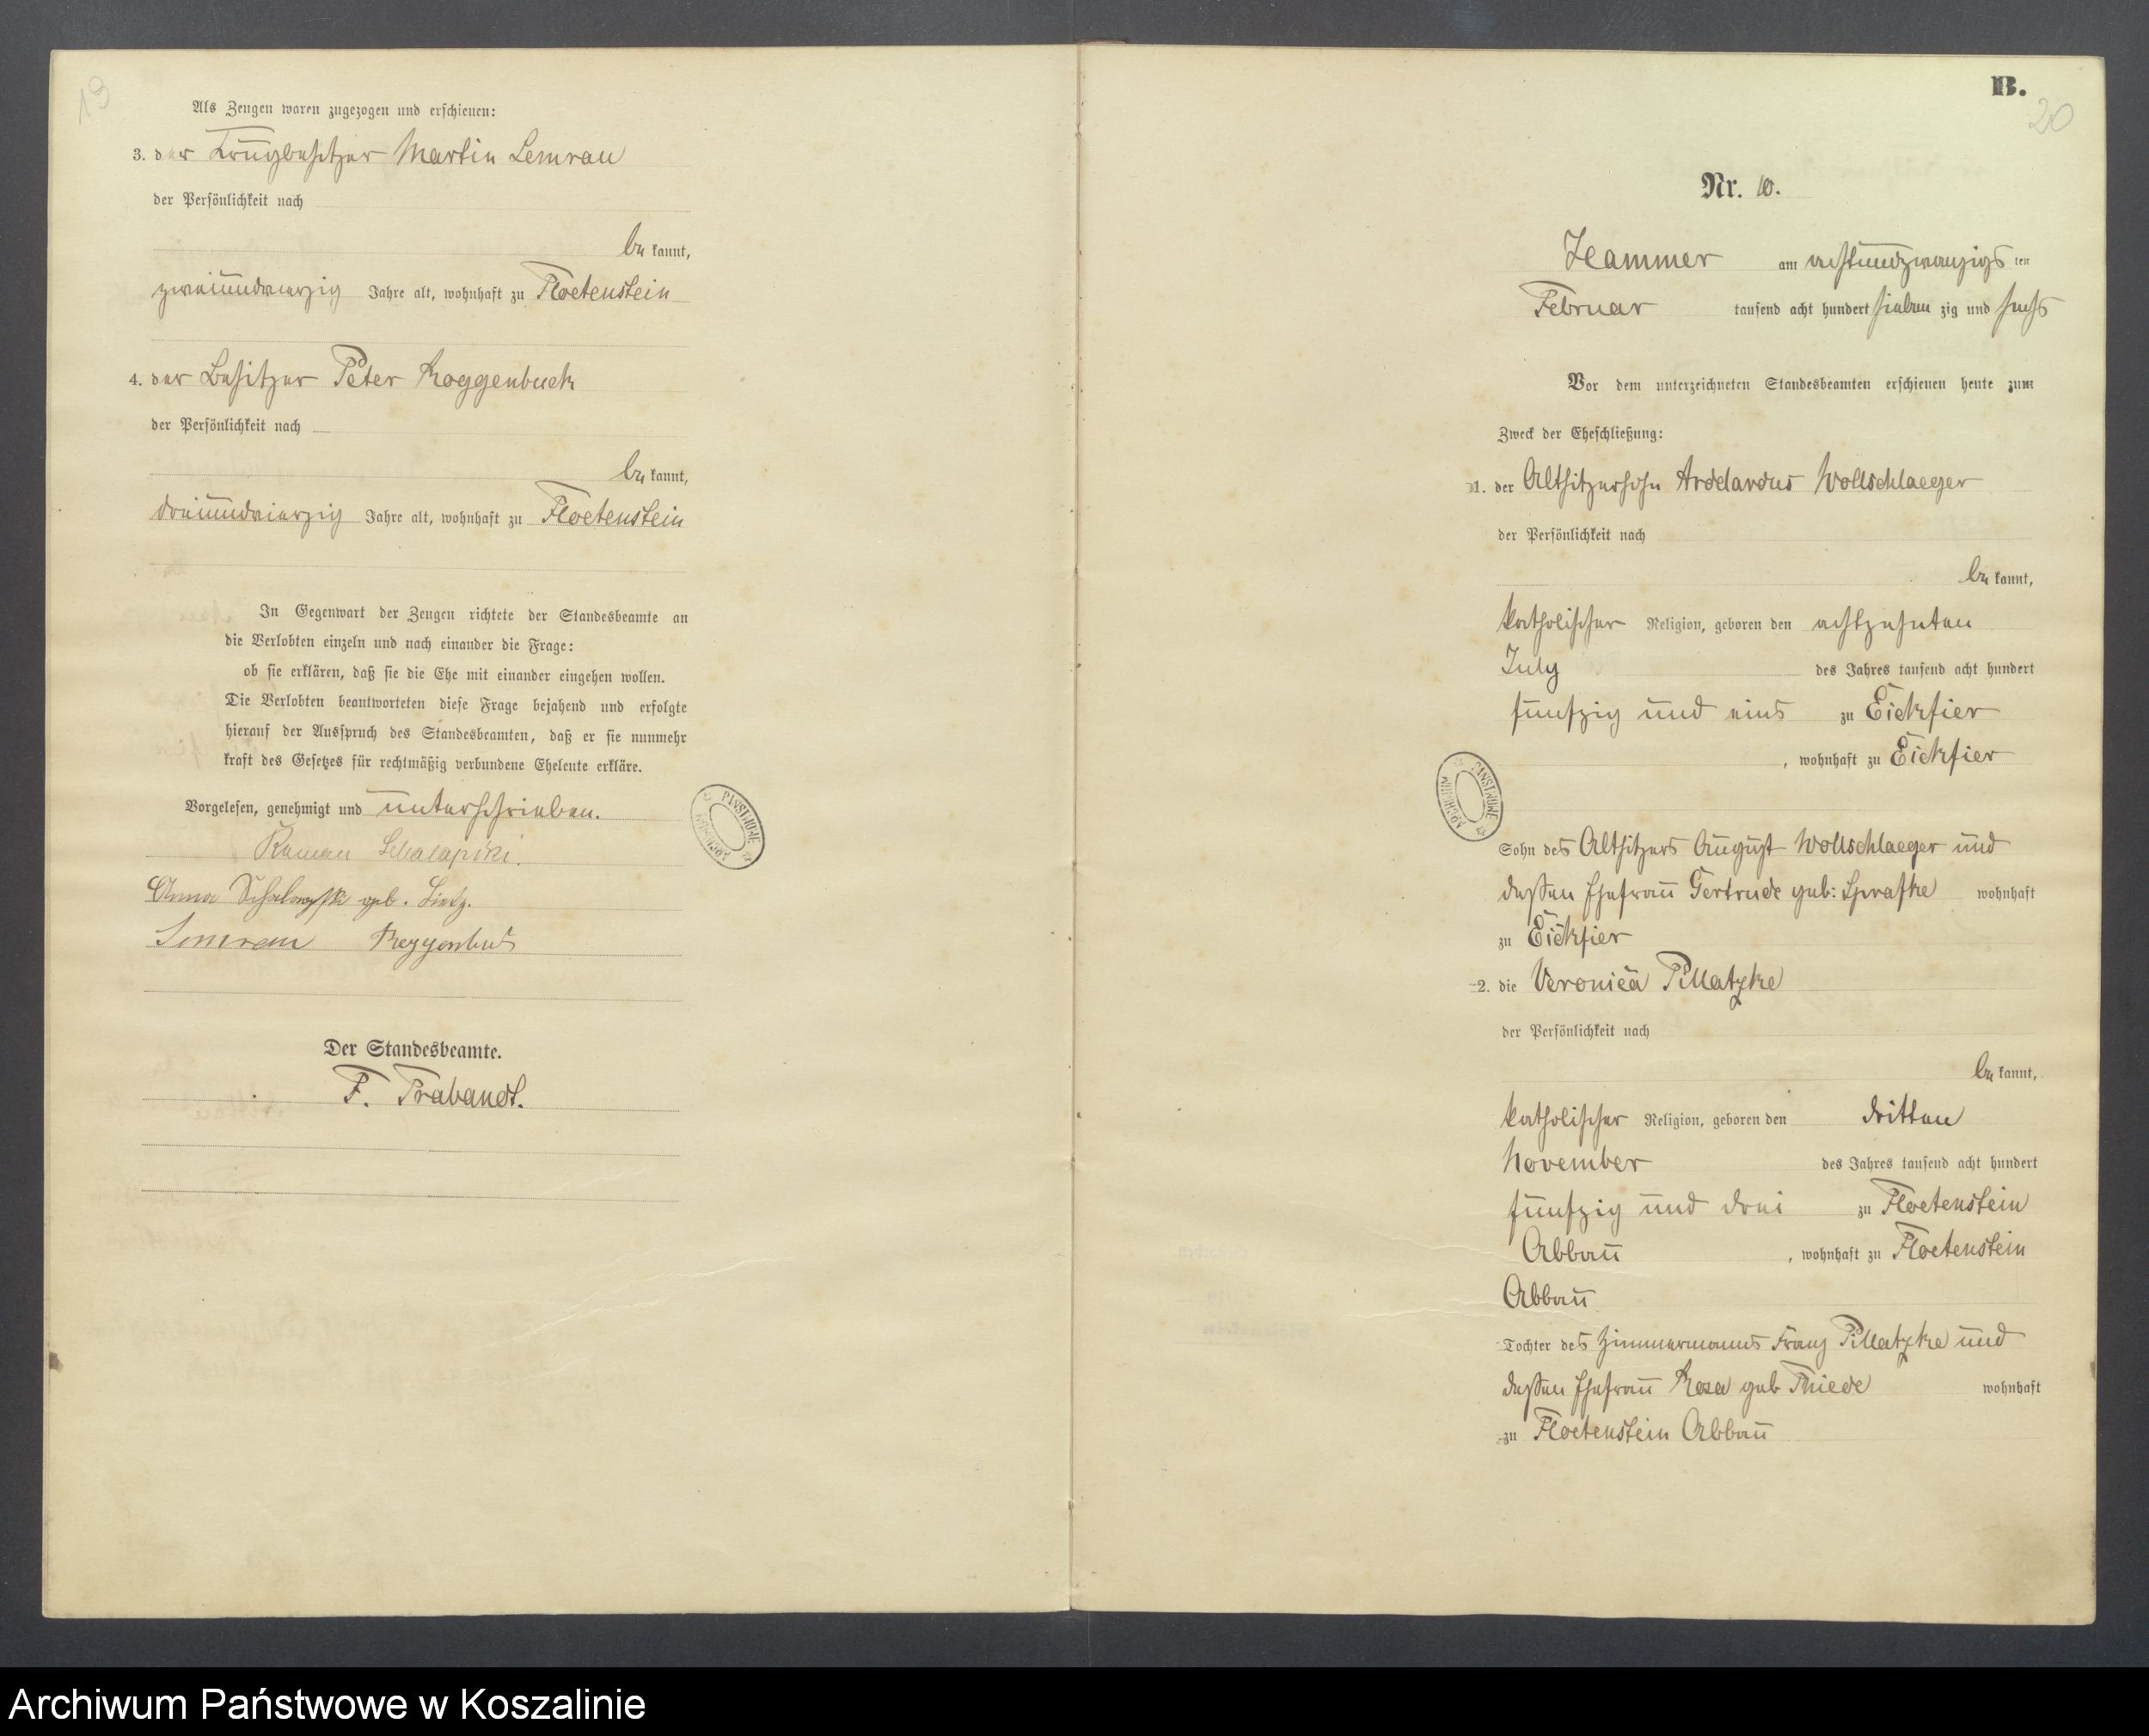 19
Als Zeugen waren zugezogen und erschienen:
3. der Krugbesitzer Martin Lemrau
der Persönlichkeit nach
be kannt,
zweiundvierzig Jahre alt, wohnhaft zu Floetenstein
4. der Besitzer Peter Roggenbuck
der Persönlichkeit nach
be kannt,
dreiundvierzig Jahre alt, wohnhaft zu Floetenstein
In Gegenwart der Zeugen richtete der Standesbeamte an
die Verlobten einzeln und nach einander die Frage:
ob sie erklären, daß sie die Ehe mit einander eingehen wollen.
Die Verlobten beantworteten diese Frage bejahend und erfolgte
hierauf der Ausspruch des Standesbeamten, daß er sie nunmehr
kraft des Gesetzes für rechtmäßig verbundene Eheleute erkläre.
Vorgelesen, genehmigt und unterschrieben.
Roman
Anna geb. Lietz.
Lemrau Roggenbuck
Der Standesbeamte.
F. Prabandt.
ARCHIWUM PAŃSTWOWE
B.
20
Nr. 10.
Hammer am achtundzwanzigs ten
Februar tausend acht hundert sieben zig und sechs
Vor dem unterzeichneten Standesbeamten erschienen heute zum
Zweck der Eheschließung:
1. der Altsitzersohn Wollschlaeger
der Persönlichkeit nach
be kannt,
katholischer Religion, geboren den achtzehnten
July des Jahres tausend acht hundert
fünfzig und eins zu Eickfier
, wohnhaft zu Eickfier
ARCHIWUM PAŃSTWOWE
Sohn des Altsitzers August Wollschlaeger und
dessen Ehefrau Gertrude geb: Sprafke wohnhaft
zu Eickfier
2. die Veronica Pillatzke
der Persönlichkeit nach
be kannt,
katholischer Religion, geboren den dritten
November des Jahres tausend acht hundert
fünfzig und drei zu Floetenstein
Abbau , wohnhaft zu Floetenstein
Abbau
Tochter des Zimmermanns Franz Pillatzke und
dessen Ehefrau Rosa geb Thiede wohnhaft
zu Floetenstein Abbau
Archiwum Państwowe w Koszalinie